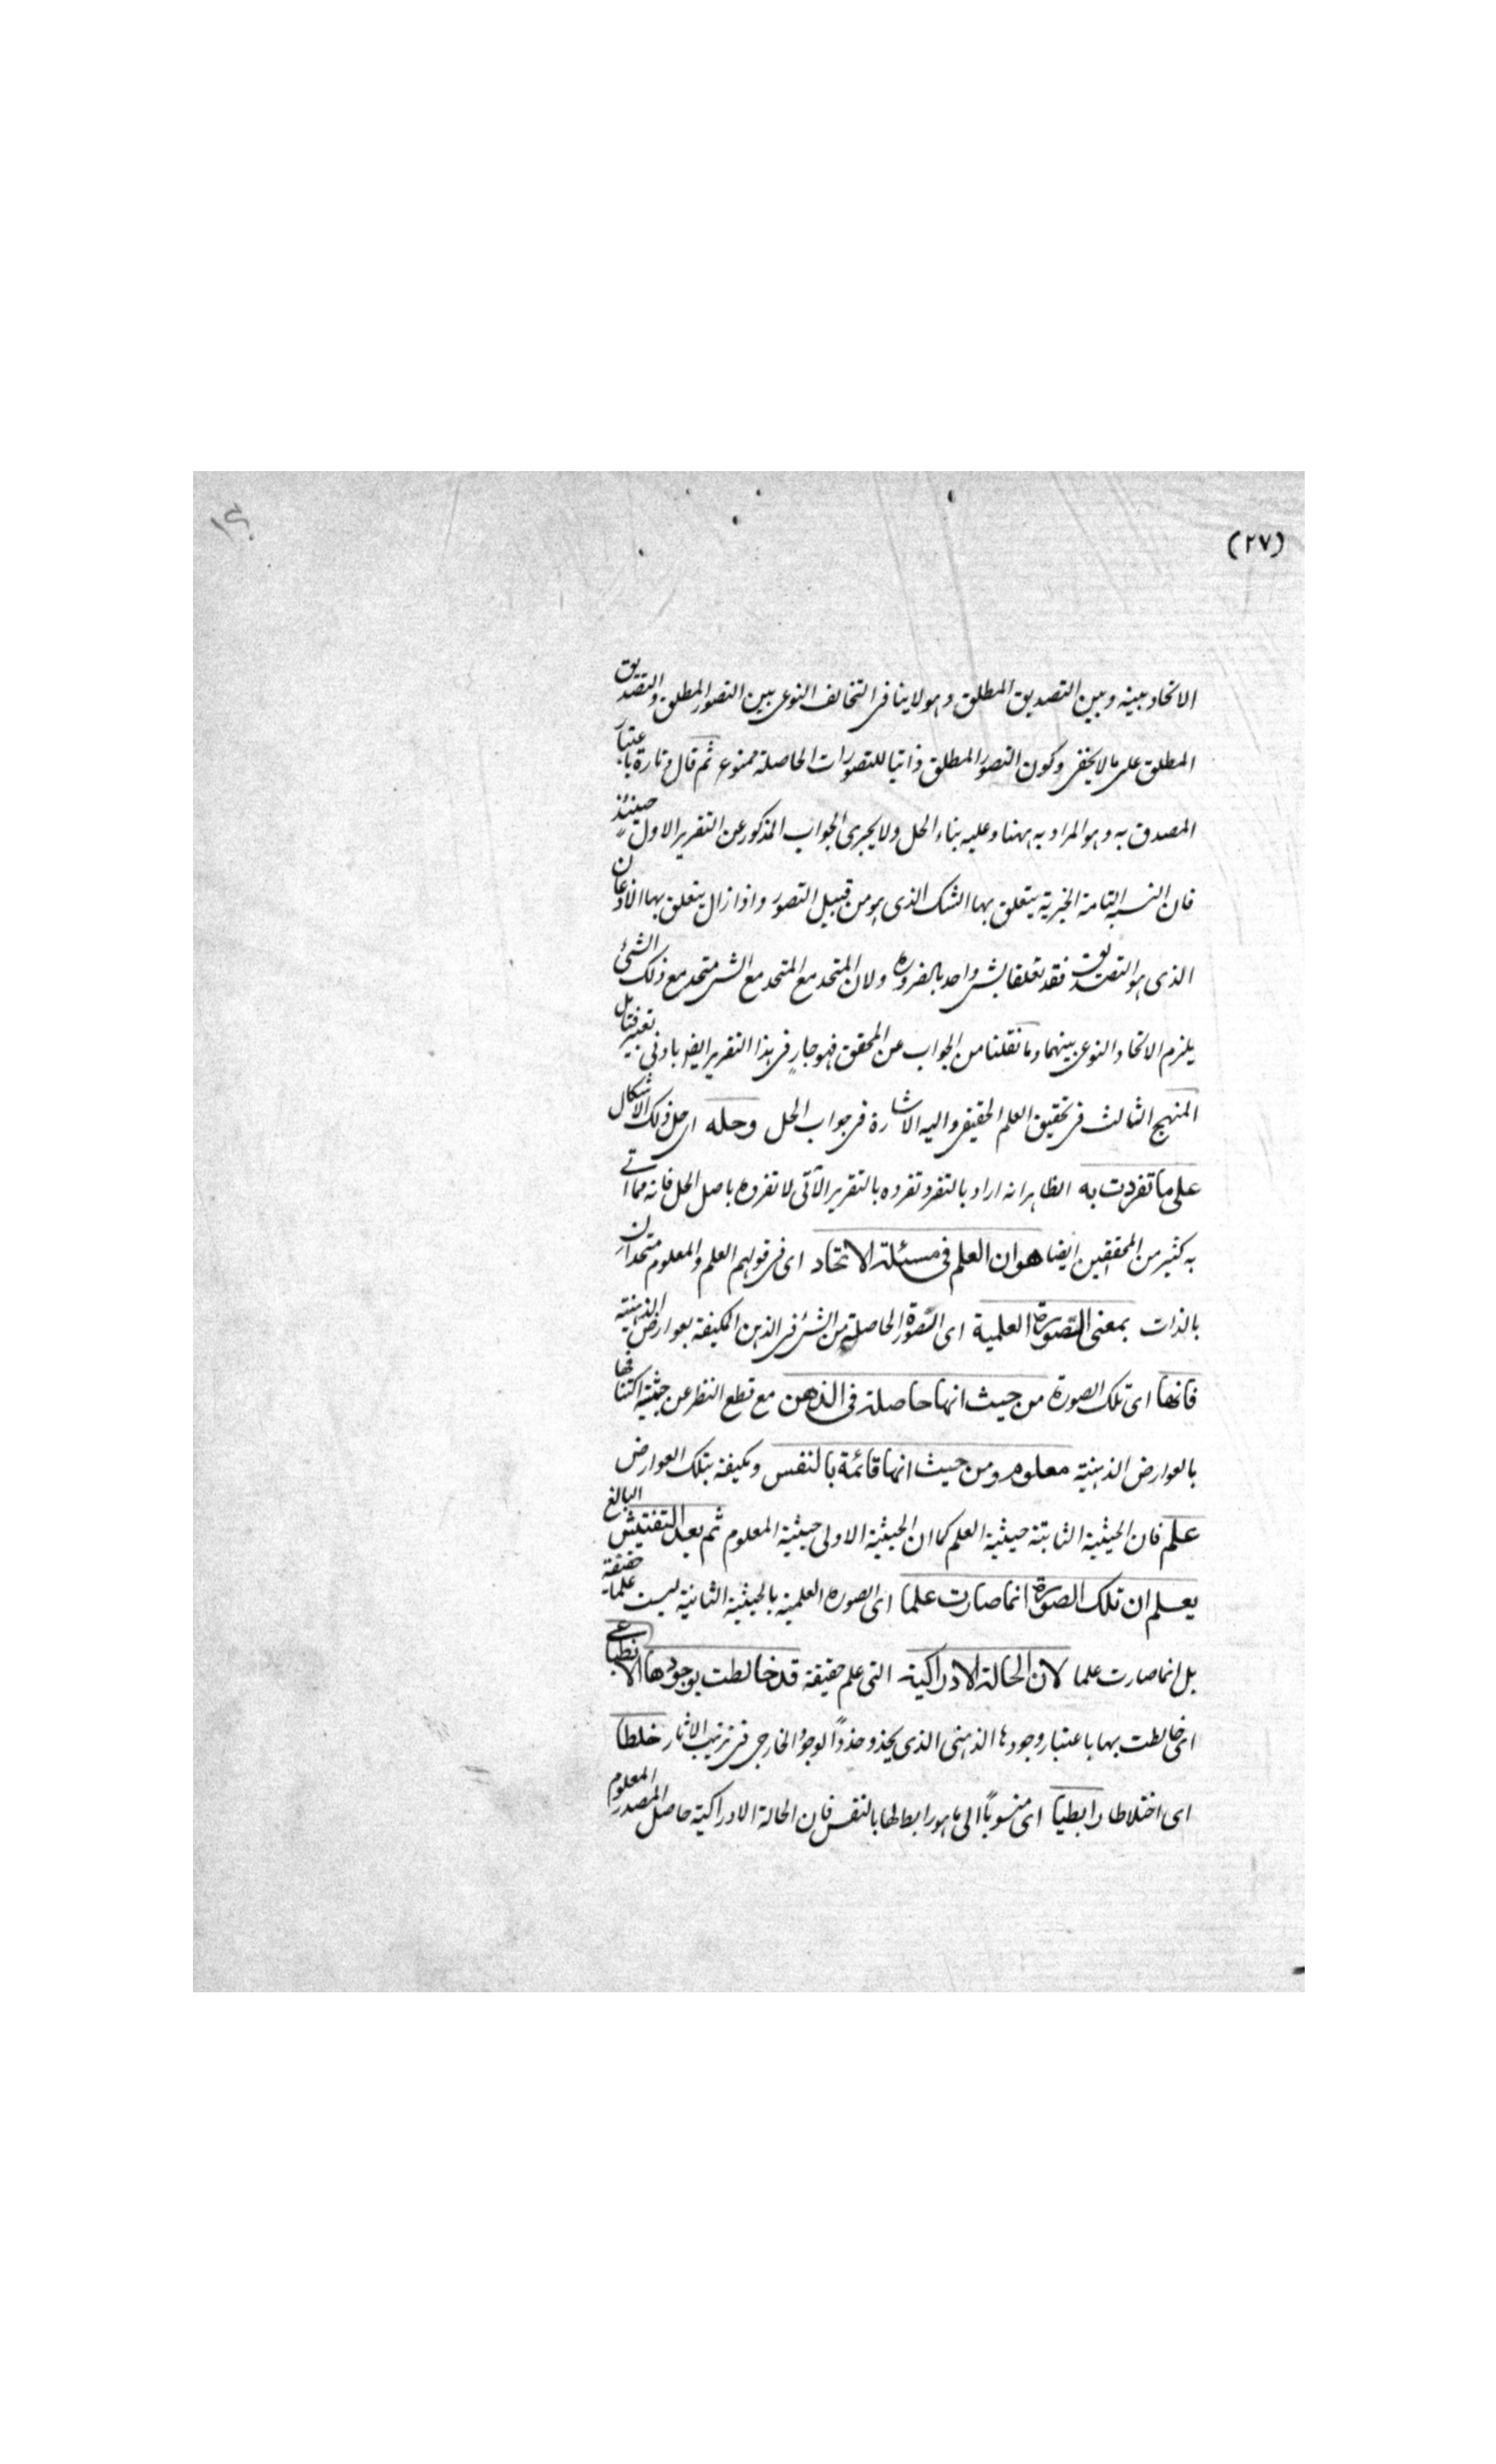 (٢٧)
الاتحاد بينه وبين التصديق المطلق وهو لا ينافى التخالف النوعى بين التصور المطلق والتصديق
المطلق على ما لا يخفى وكون التصور المطلق ذاتيا للتصورات الحاصلة ممنوع ثم قال وتارة باعتبار
المصدق به وهو المراد به ههنا وعليه بناء الحل ولا يجرى الجواب المذكور عن التقرير الاول حينئذ
فان النسبة التامة الخبرية يتعلق بها الشك الذى هو من قبيل التصور واذا زال يتعلق بها الاذعان
الذى هو التصديق فقد تعلقا بشئ واحد بالضرورة ولان المتحد مع المتحد مع الشئ متحد مع ذلك الشئ
يلزم الاتحاد النوعى بينهما وما نقلنا من الجواب عن المحقق فهو جار فى هذا التقرير ايضا بادنى تغيير فتامل
المنهج الثالث فى تحقيق العلم الحقيقى واليه الاشارة فى جواب الحل وحله اى حل ذلك الاشكال
على ما تفردت به الظاهر انه اراد بالتفرد تفرده بالتقرير الآتى لا تفرده باصل الحل فانه مما اتى
به كثير من المحققين ايضا هو ان العلم فى مسئلة الاتحاد اى فى قولهم العلم والمعلوم متحدان
بالذات بمعنى الصورة العلمية اى الصورة الحاصلة من الشئ فى الذهن المكيفة بعوارض الذهنية
فانها اى تلك الصورة من حيث انها حاصلة فى الذهن مع قطع النظر عن حيثية اكتنافها
بالعوارض الذهنية معلوم ومن حيث انها قائمة بالنفس ومكيفة بتلك العوارض
علم فان الحيثية الثابتة حيثية العلم كما ان الحيثية الاولى حيثية المعلوم ثم بعد التفتيش البالغ
يعلم ان تلك الصورة انما صارت علما اى الصورة العلمية بالحيثية الثانية ليست علما حقيقة
بل انما صارت علما لان الحالة الادراكية التى علم حقيقة قد خالطت بوجودها الانطباعى
اى خالطت بها باعتبار وجودها الذهنى الذى يحذو حذو الوجود الخارجى فى ترتيب الاثار خلطا
اى اختلاطا رابطيا اى منسوبًا الى ما هو رابط لها بالنفس فان الحالة الادراكية حاصل المصدر المعلوم